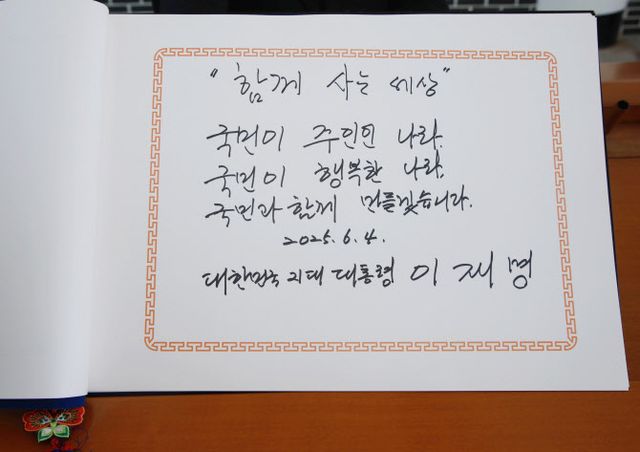 "함께 사는 세상"
국민이 주인인 나라.
국민이 행복한 나라.
국민과 함께 만들겠습니다.
2025. 6. 4.
대한민국 21대 대통령 이재명